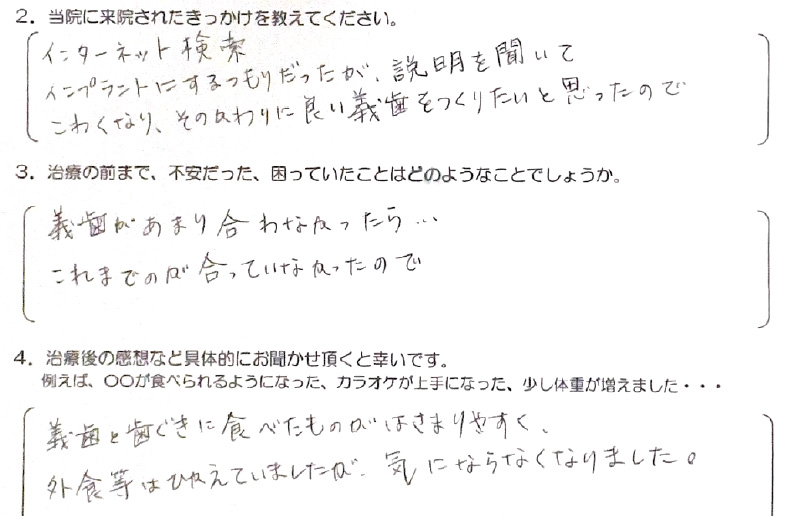 2．当院に来院されたきっかけを教えてください。
インターネット検索
インプラントにするつもりだったが、説明を聞いて
こわくなり、その代わりに良い義歯をつくりたいと思ったので
3．治療の前まで、不安だった、困っていたことはどのようなことでしょうか。
義歯があまり合わなかったら…
これまでのが合っていなかったので
4．治療後の感想など具体的にお聞かせ頂くと幸いです。
例えば、〇〇が食べられるようになった、カラオケが上手になった、少し体重が増えました・・・
義歯と歯ぐきに食べたものがはさまりやすく、
外食等はひかえていましたが、気にならなくなりました。